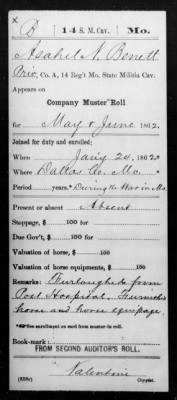 B 14 S. M. Cav. Mo.
Asahel N. Benett
Priv, Co. A, 14 Reg't Mo. State Militia Cav.
Appears on
Company Muster Roll
for May & June 1862.
Joined for duty and enrolled:
When Jan'y 20, 1862
Where Dallas Co. Mo.
Period years. During the War in Mo.
Present or absent Absent
Stoppage, $ 100 for
Due Gov't, $ 100 for
Valuation of horse, $ 100
Valuation of horse equipments, $ 100
Remarks: Furloughed from
Post Hospital. Furnished
horse and horse equipage.
*See enrollment on card from muster-in roll.
Book-mark:
FROM SECOND AUDITOR'S ROLL.
Valentine
(858c) Copyist.